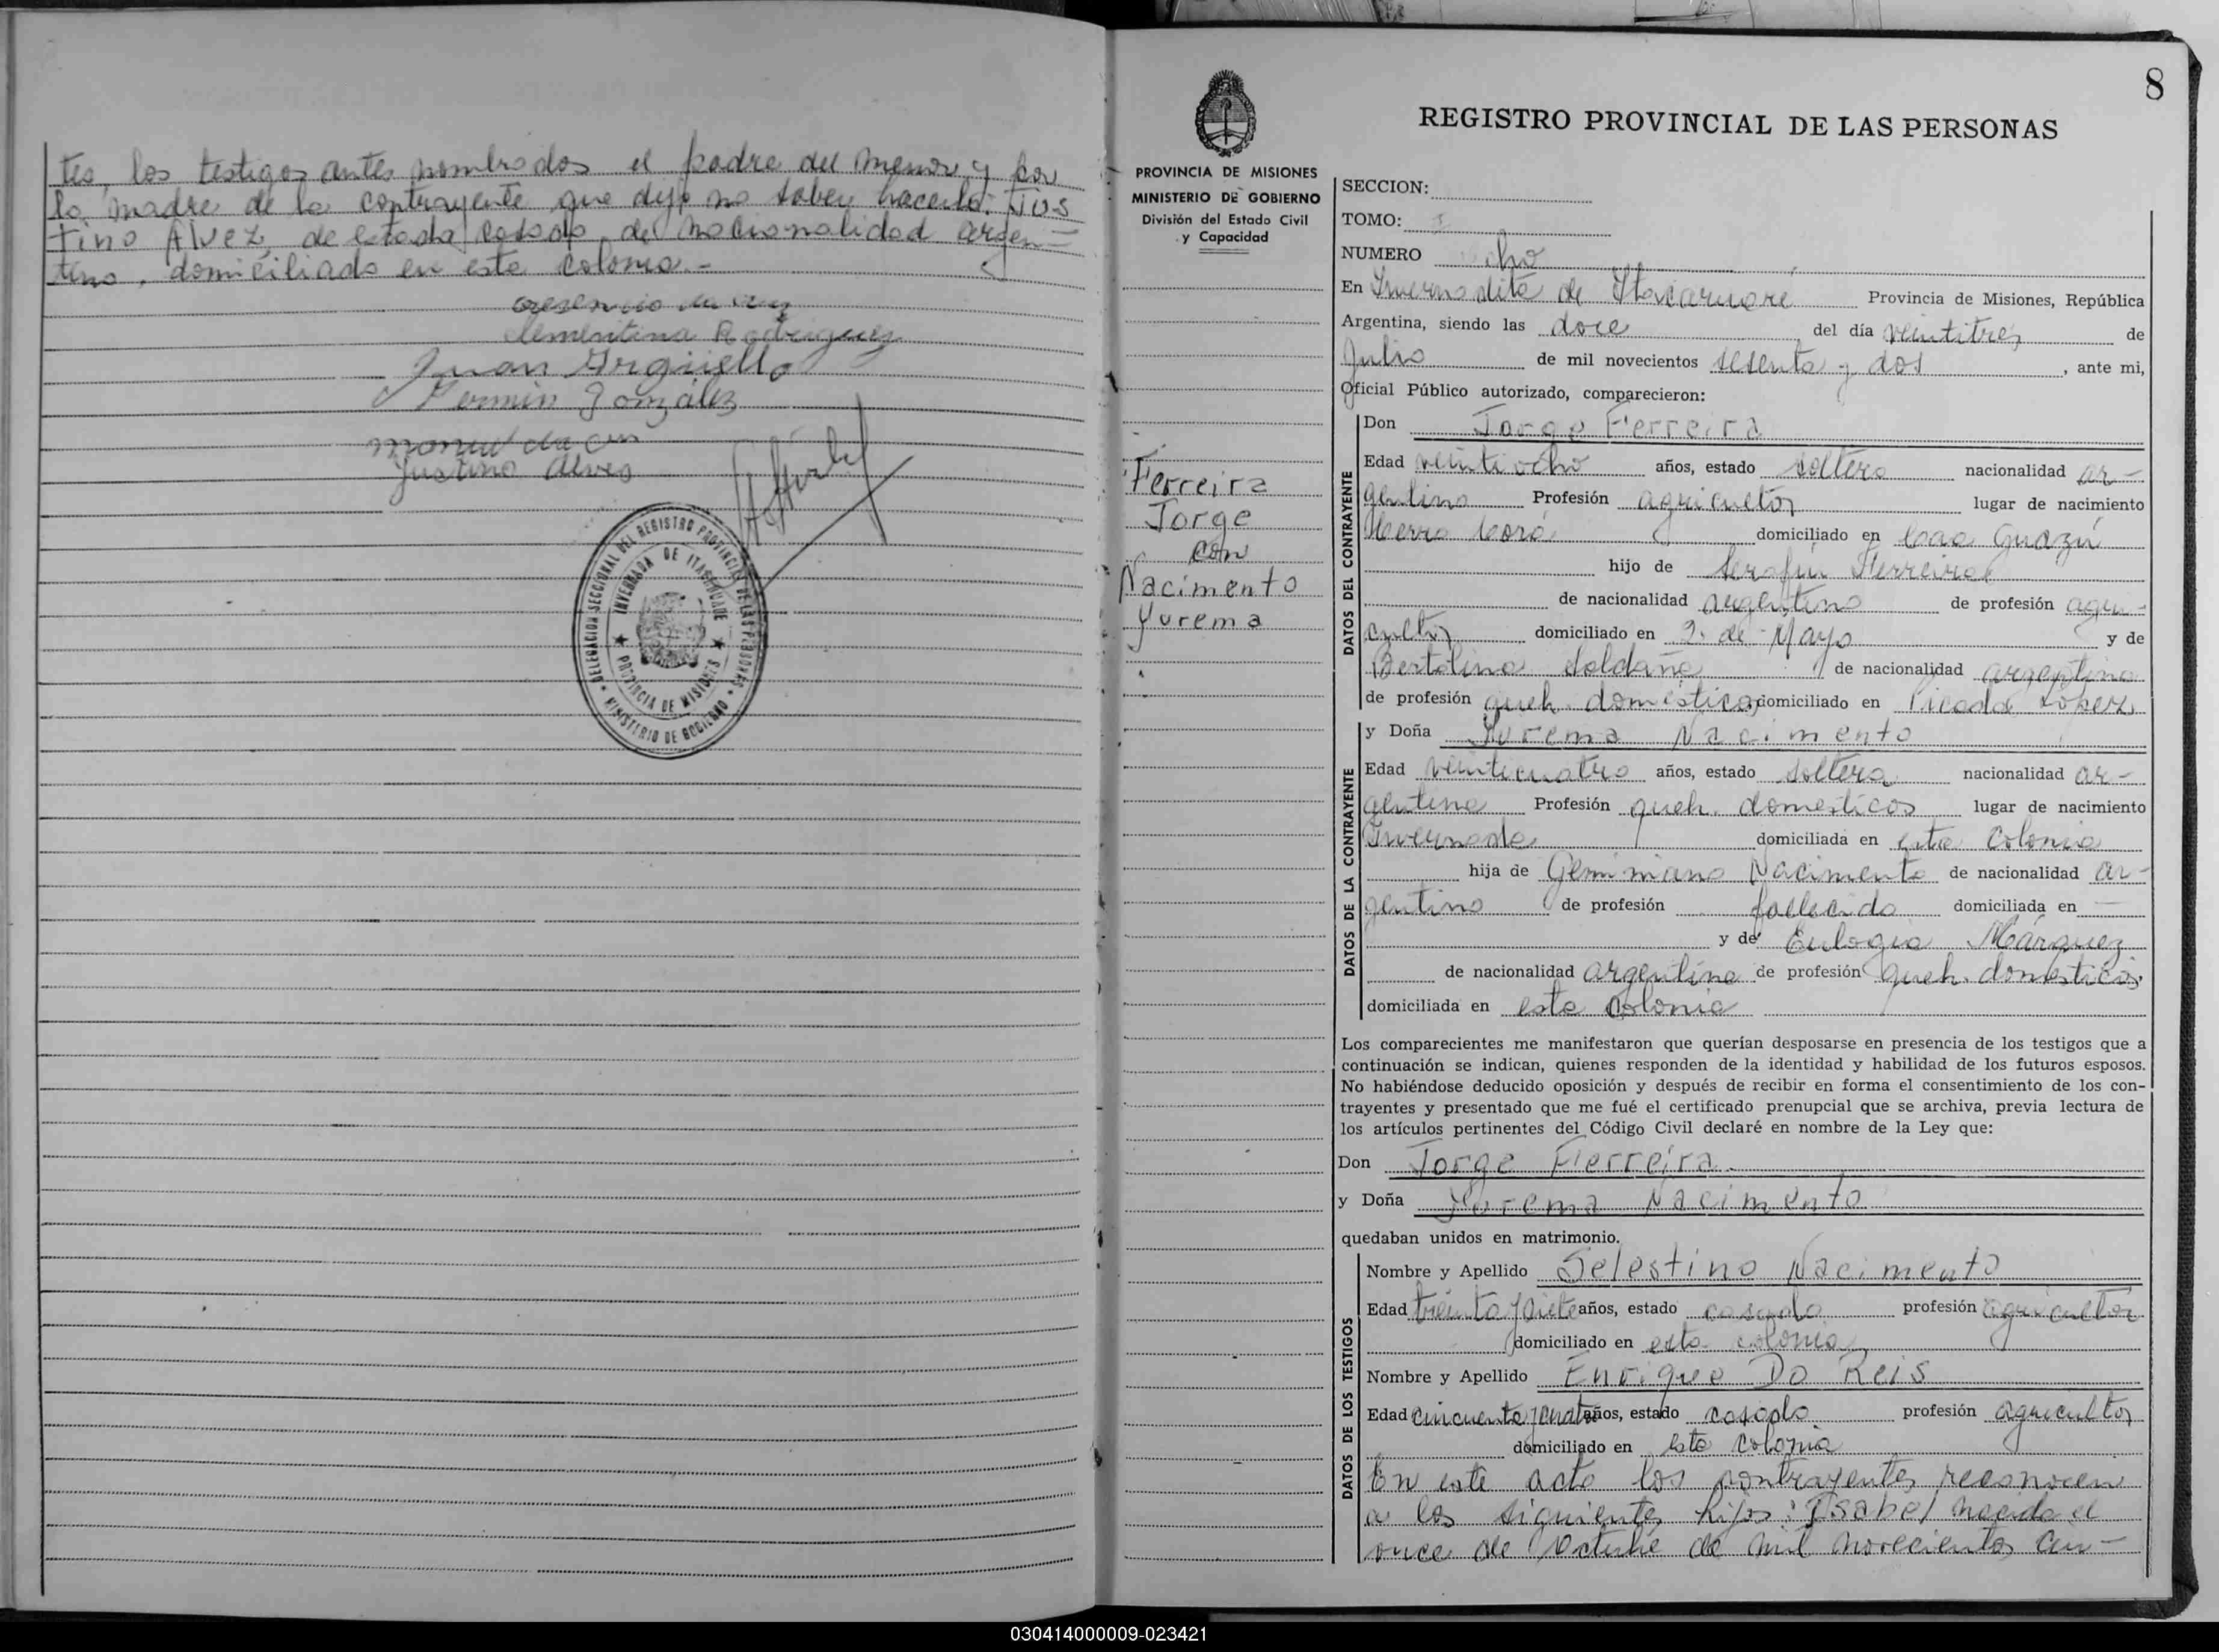 tes, los testigos antes nombrados el padre del menor y por
la madre de la contrayente que dijo no saber hacerlo: Jus
tino Alvez, de estado casado, de nacionalidad argen=
tino, domiciliado en esta colonia.-
clementina Rodriguez
Juan Argüello
Fermin Gonzalez
Justino Alves
DELEGACION SECCIONAL DEL REGISTRO PROVINCIAL DE LAS PERSONAS
INVERNADA DE ITACARUARE
PROVINCIA DE MISIONES
MINISTERIO DE GOBIERNO
8
PROVINCIA DE MISIONES
MINISTERIO DE GOBIERNO
División del Estado Civil
y Capacidad
Ferreira
Jorge
con
Nacimento
Yurema
REGISTRO PROVINCIAL DE LAS PERSONAS
SECCION:
TOMO: I
NUMERO ocho
En Invernadita de Itacaruaré Provincia de Misiones, República
Argentina, siendo las doce del día veintitres de
Julio de mil novecientos sesenta y dos, ante mi,
Oficial Público autorizado, comparecieron:
DATOS DEL CONTRAYENTE
Don Jorge Ferreira
Edad veintiocho años, estado soltero nacionalidad ar-
gentino Profesión agricultor lugar de nacimiento
Cerro Corá domiciliado en Caa Guazú
hijo de Serafin Ferreira
de nacionalidad argentino de profesión agri-
cultor domiciliado en 2 de Mayo y de
Bertolina Soldaña de nacionalidad argentina
de profesión queh. domésticos domiciliado en Picada
y Doña Yurema Nacimento
DATOS DE LA CONTRAYENTE
Edad veinticuatro años, estado soltera nacionalidad ar-
gentina Profesión queh. domésticos lugar de nacimiento
Invernada domiciliada en esta Colonia
hija de Geminiano Nacimento de nacionalidad ar-
gentino de profesión fallecido domiciliada en —
y de Eulogia Márquez
de nacionalidad argentina de profesión queh. domésticos
domiciliada en esta Colonia
Los comparecientes me manifestaron que querían desposarse en presencia de los testigos que a
continuación se indican, quienes responden de la identidad y habilidad de los futuros esposos.
No habiéndose deducido oposición y después de recibir en forma el consentimiento de los con-
trayentes y presentado que me fué el certificado prenupcial que se archiva, previa lectura de
los artículos pertinentes del Código Civil declaré en nombre de la Ley que:
Don Jorge Ferreira
y Doña Yurema Nacimento
quedaban unidos en matrimonio.
DATOS DE LOS TESTIGOS
Nombre y Apellido Selestino Nacimento
Edad treinta y siete años, estado casado profesión agricultor
domiciliado en esta colonia
Nombre y Apellido Enrique Do Reis
Edad cincuenta y cuatro años, estado casado profesión agricultor
domiciliado en esta colonia
En este acto los contrayentes reconocen
a los siguientes hijos: Isabel nacida el
once de Octubre de mil novecientos cin-
030414000009-023421